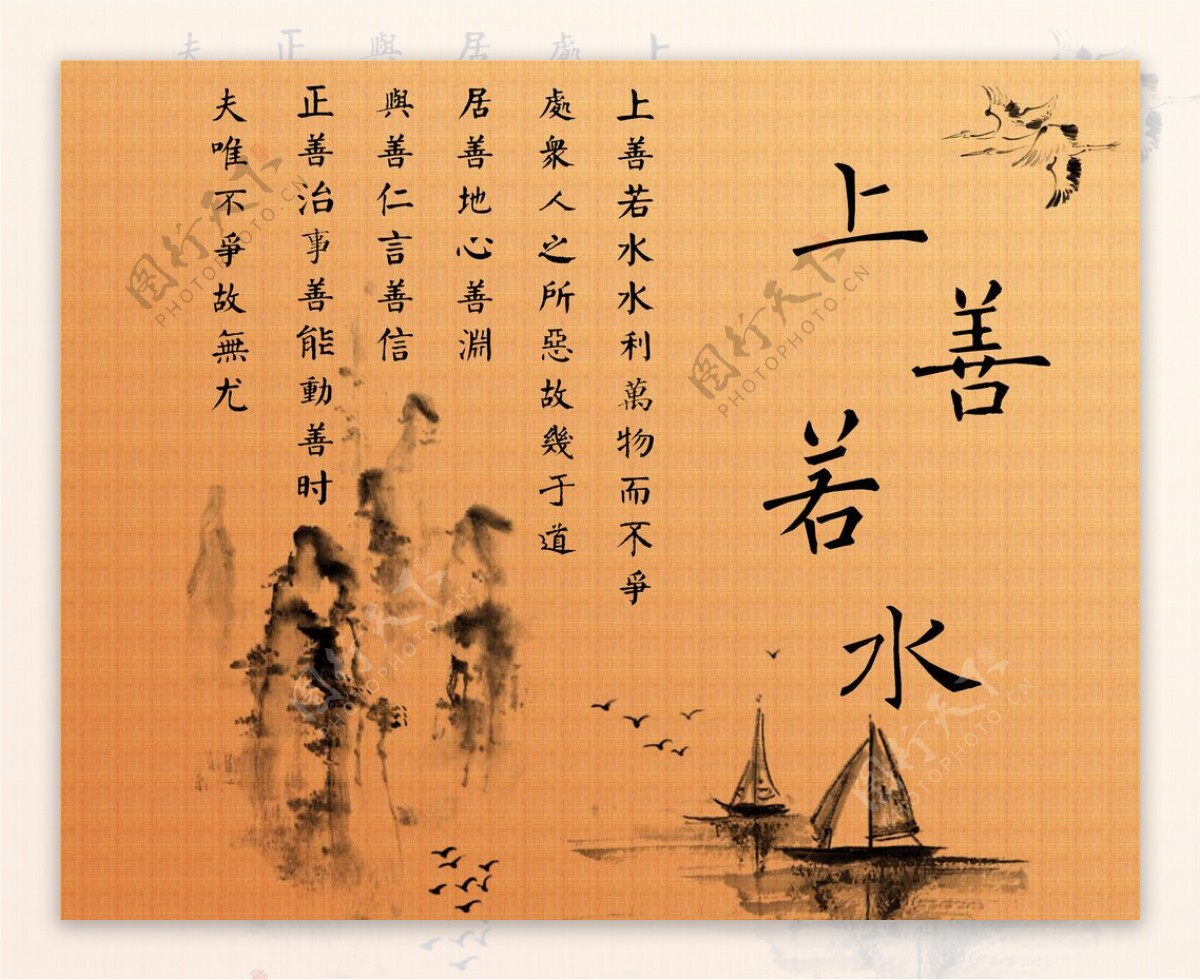 上善若水
上善若水水利萬物而不爭
處衆人之所惡故幾于道
居善地心善淵
與善仁言善信
正善治事善能動善时
夫唯不爭故無尤
图行天下
PHOTOPHOTO.CN
图行天下
PHOTOPHOTO.CN
图行天下
图行天下
PHOTOPHOTO.CN
夫正與居處上